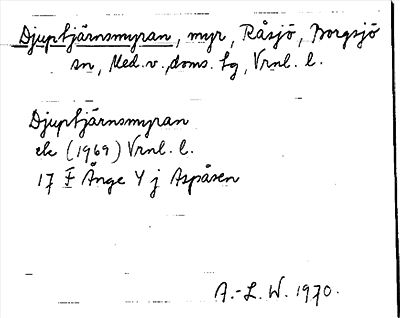 Djuptjärnsmyran, myr, Råsjö, Borgsjö
sn, Med. v. doms. tg, Vrnl. l.
Djuptjärnsmyran
ek (1969) Vrnl. l.
17 F Ånge Y j Aspåsen
A.-L. W. 1970.